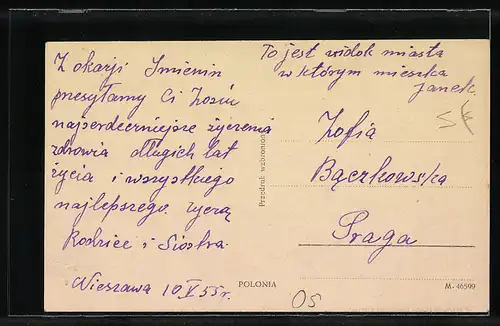 Z okazji Imienin
przesyłamy Ci Zosiu
najserdeczniejsze życzenia
zdrowia długich lat
życia i wszystkiego
najlepszego życzą
Rodzice i Siostra.
Wieszawa 10 V 55 r.
To jest widok miasta
w którym mieszka
Janek.
Zofia
Bączkowska
Praga
Przedruk wzbroniony
POLONIA
M-46599
OS